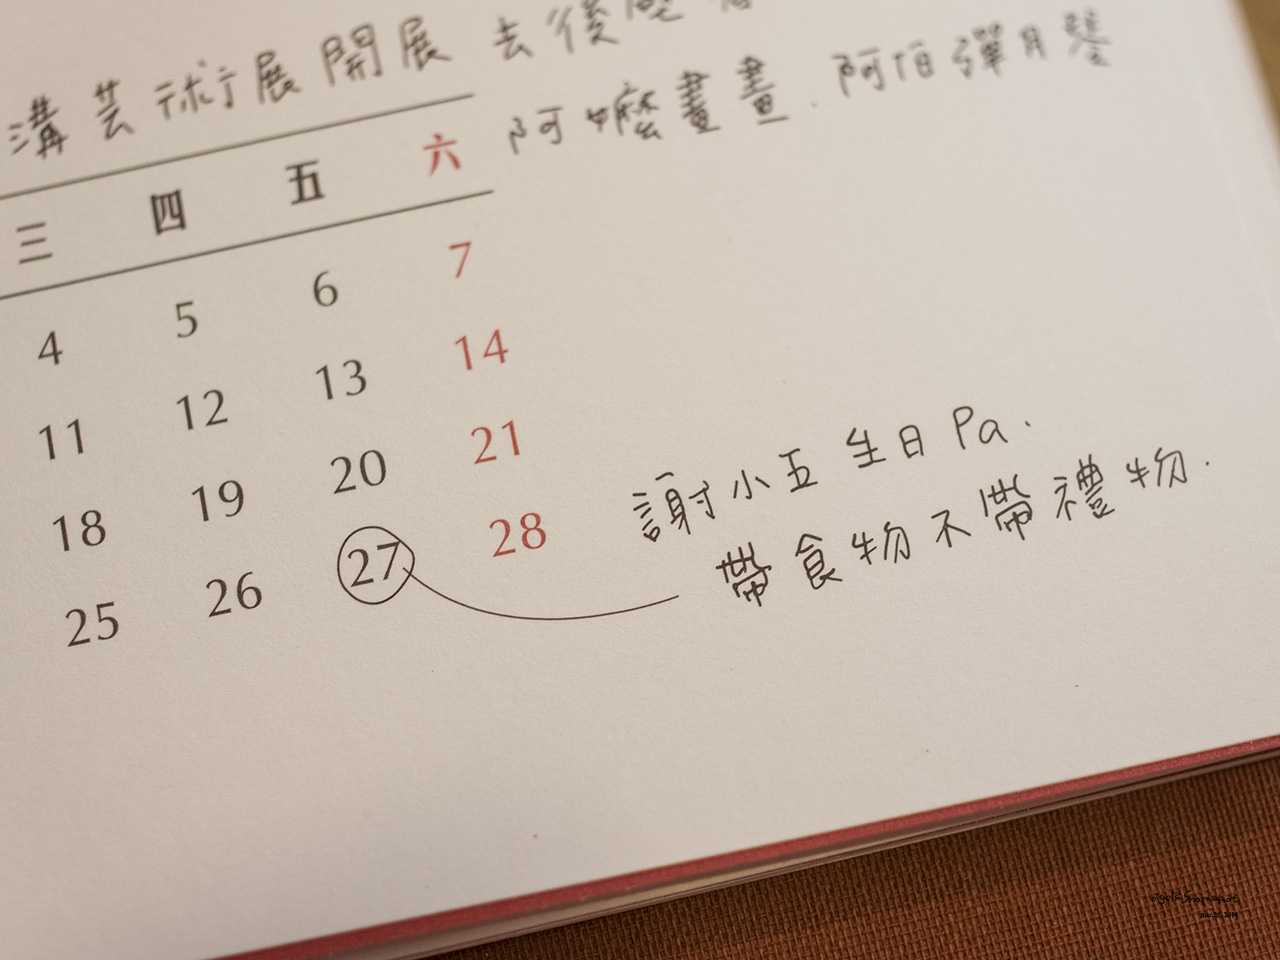 溝芸術展開展 去後壁
阿嬤畫畫．阿伯彈月琴
三 四 五 六
4 5 6 7
11 12 13 14
18 19 20 21
25 26 27 28
謝小五生日Pa.
帶食物不帶禮物.
mar.26.2014